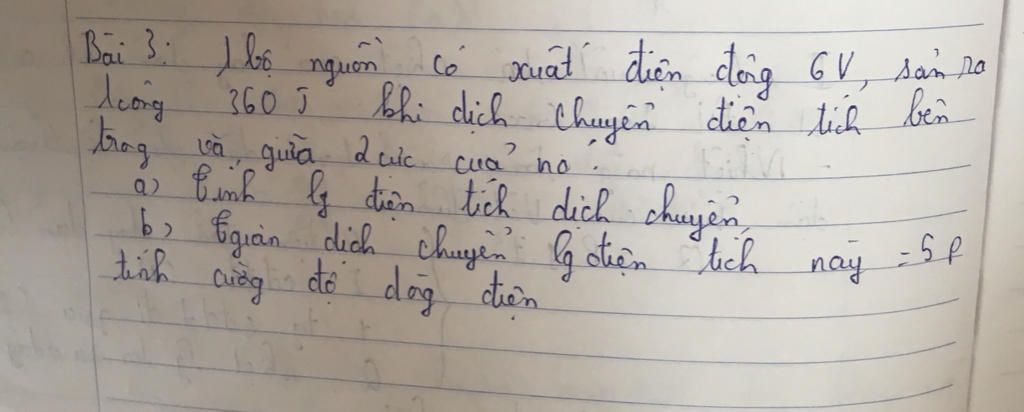 Bài 3: 1 bộ nguồn có xuất điện động 6V, sản ra
1 công 360 J khi dịch chuyển điện tích bên
trog và giữa 2 cực của nó.
a) tính lg điện tích dịch chuyển
b) tgian dịch chuyển lg điện tích này = 5 p
tính cường độ dòg điện